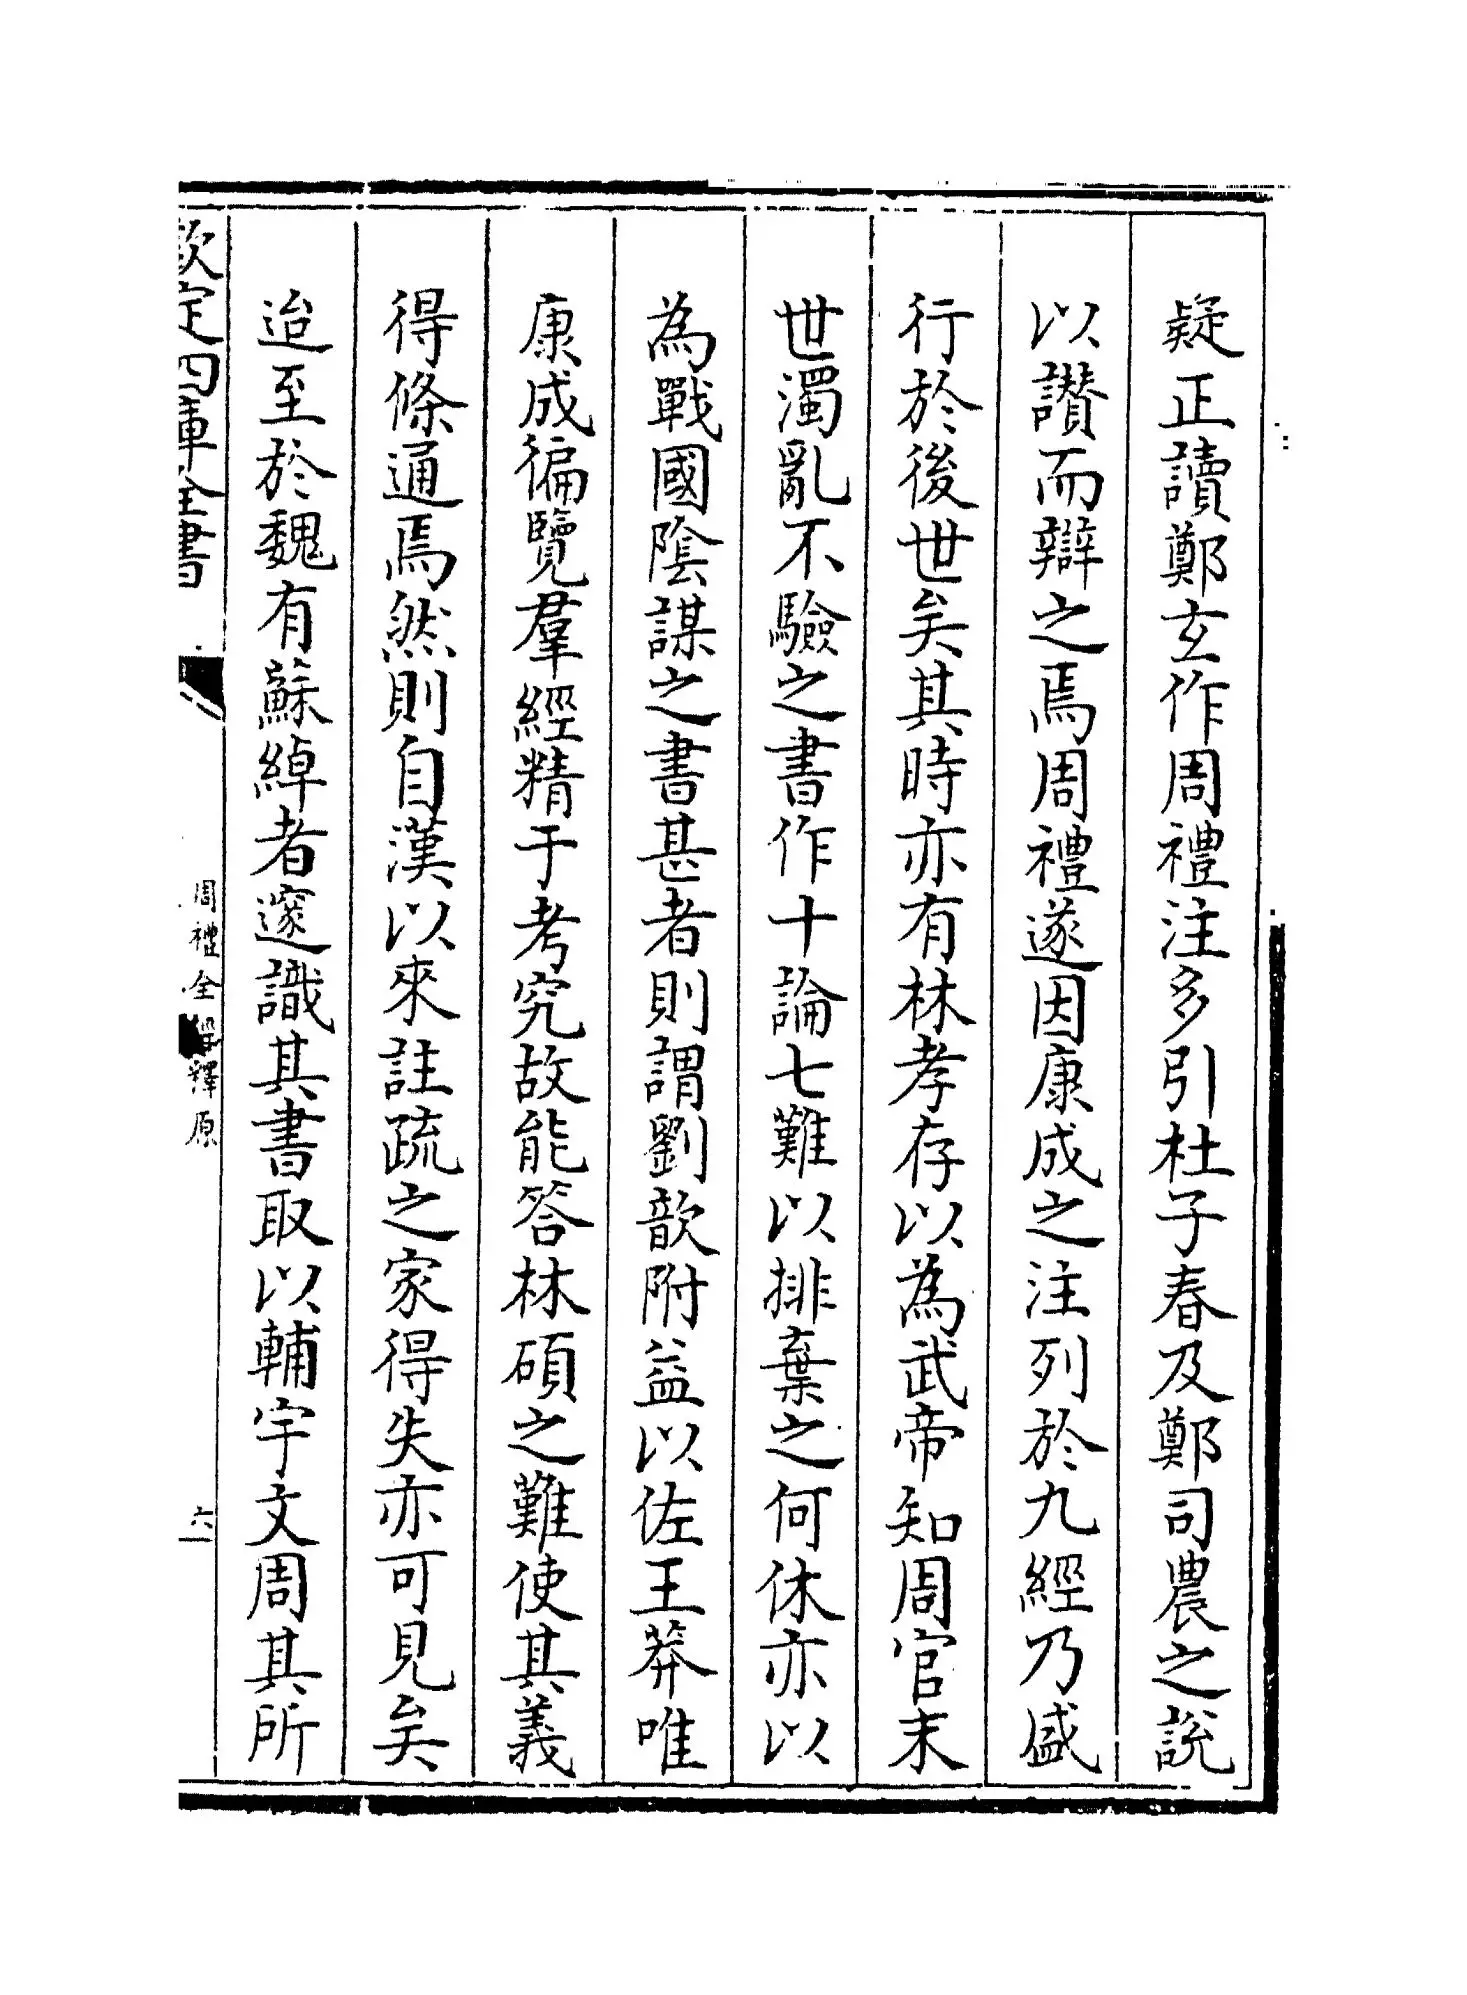 疑正讀鄭玄作周禮注多引杜子春及鄭司農之說
以讃而辯之焉周禮遂因康成之注列於九經乃盛
行於後世矣其時亦有林孝存以為武帝知周官末
世濁亂不驗之書作十論七難以排棄之何休亦以
為戰國陰謀之書甚者則謂劉歆附益以佐王莽唯
康成徧覽羣經精于考究故能答林碩之難使其義
得條通焉然則自漢以來註疏之家得失亦可見矣
迨至於魏有蘇綽者邃識其書取以輔宇文周其所
欽定四庫全書
周禮全解釋原
六